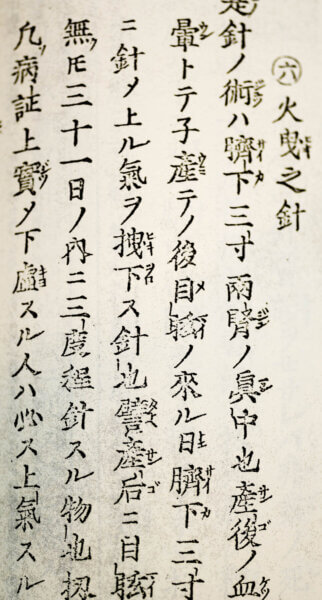 ㊅火曳之針
是針ノ術ハ臍下三寸兩腎ノ眞中也產後ノ血
暈トテ子產テノ後目眩ノ來ル日臍下三寸
ニ針〆上ル氣ヲ拽下ス針也譬產后ニ目眩
無𪜈三十一日ノ内ニ三度程針スル物也扨
凡病証上實〆下虛スル人ハ必ス上氣スル